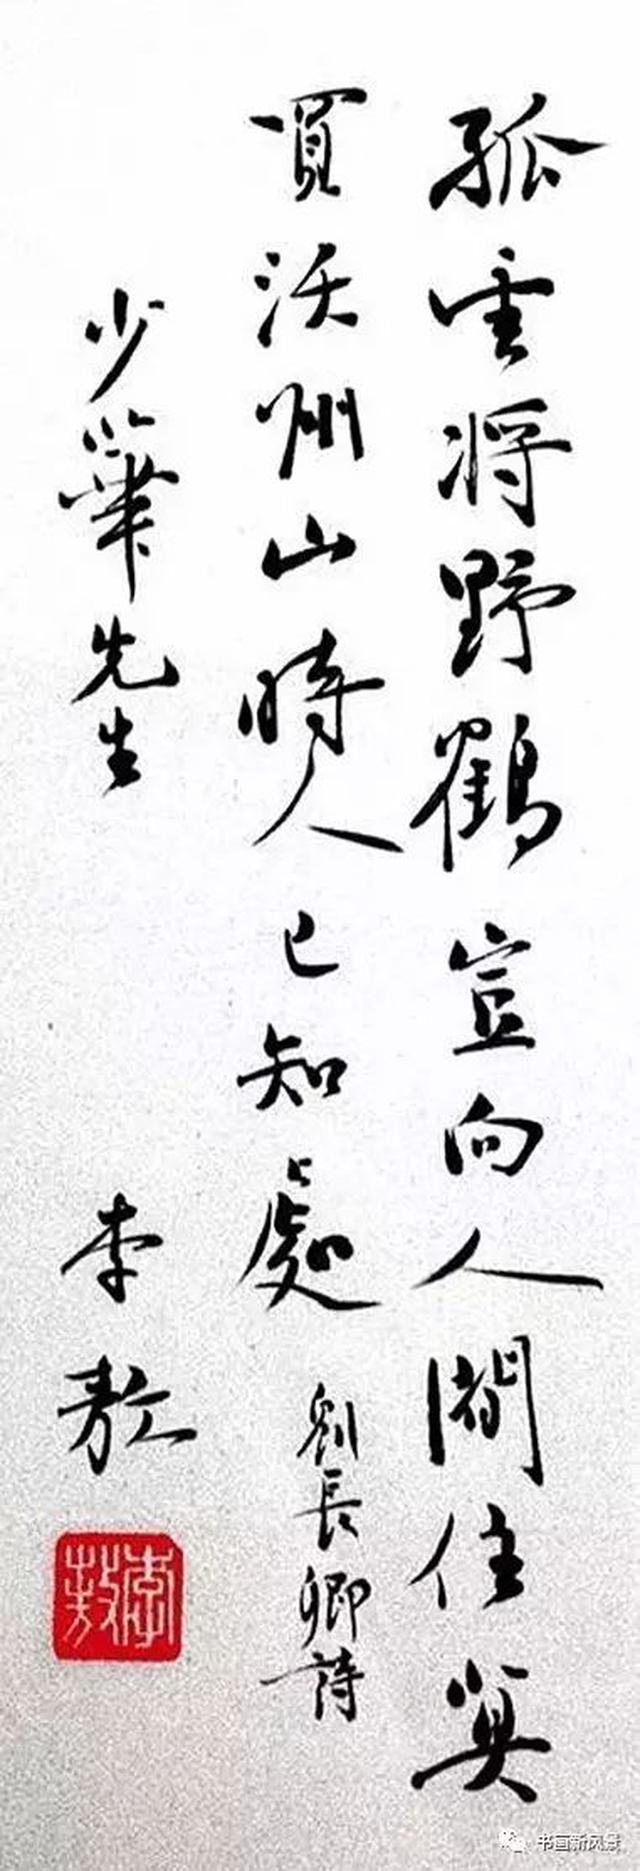 孤雲將野鶴豈向人間住莫
買沃州山時人已知處
劉長卿詩
少華先生
李敖
李敖
书画新风景